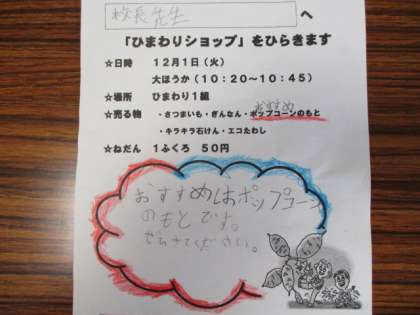 校長先生 へ
「ひまわりショップ」をひらきます
☆日時 12月1日(火)
大ほうか(10:20〜10:45)
☆場所 ひまわり1組
おすすめ
☆売る物 ・さつまいも・ぎんなん・ポップコーンのもと
・キラキラ石けん・エコたわし
☆ねだん 1ふくろ 50円
おすすめはポップコーン
のもとです。
ぜひきてください。